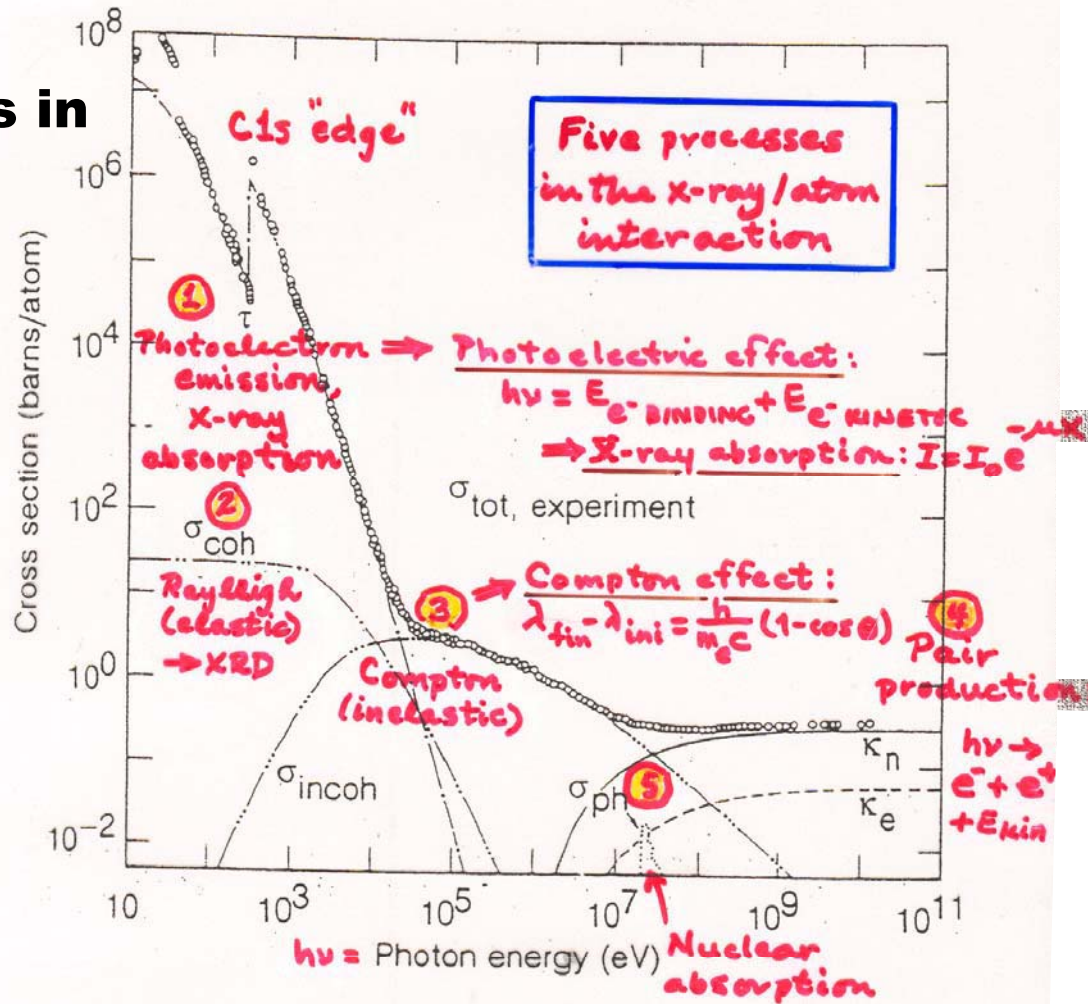 s in
10⁸
10⁶
10⁴
10²
10⁰
10⁻²
Cross section (barns/atom)
C1s "edge"
Five processes
in the x-ray/atom
interaction
1
τ
Photoelectron ⇒ Photoelectric effect:
emission,
X-ray
absorption
hν = E e⁻ BINDING + E e⁻ KINETIC
⇒ X-ray absorption: I = I₀e^-μx
2
σcoh
σtot, experiment
Rayleigh
(elastic)
→ XRD
3
⇒ Compton effect:
λfin - λini = h/mₑc (1-cosθ)
Compton
(inelastic)
4
Pair
production
hν →
e⁻ + e⁺
+ Ekin
σincoh
σph
5
κn
κe
10
10³
10⁵
10⁷
10⁹
10¹¹
hν = Photon energy (eV)
Nuclear
absorption